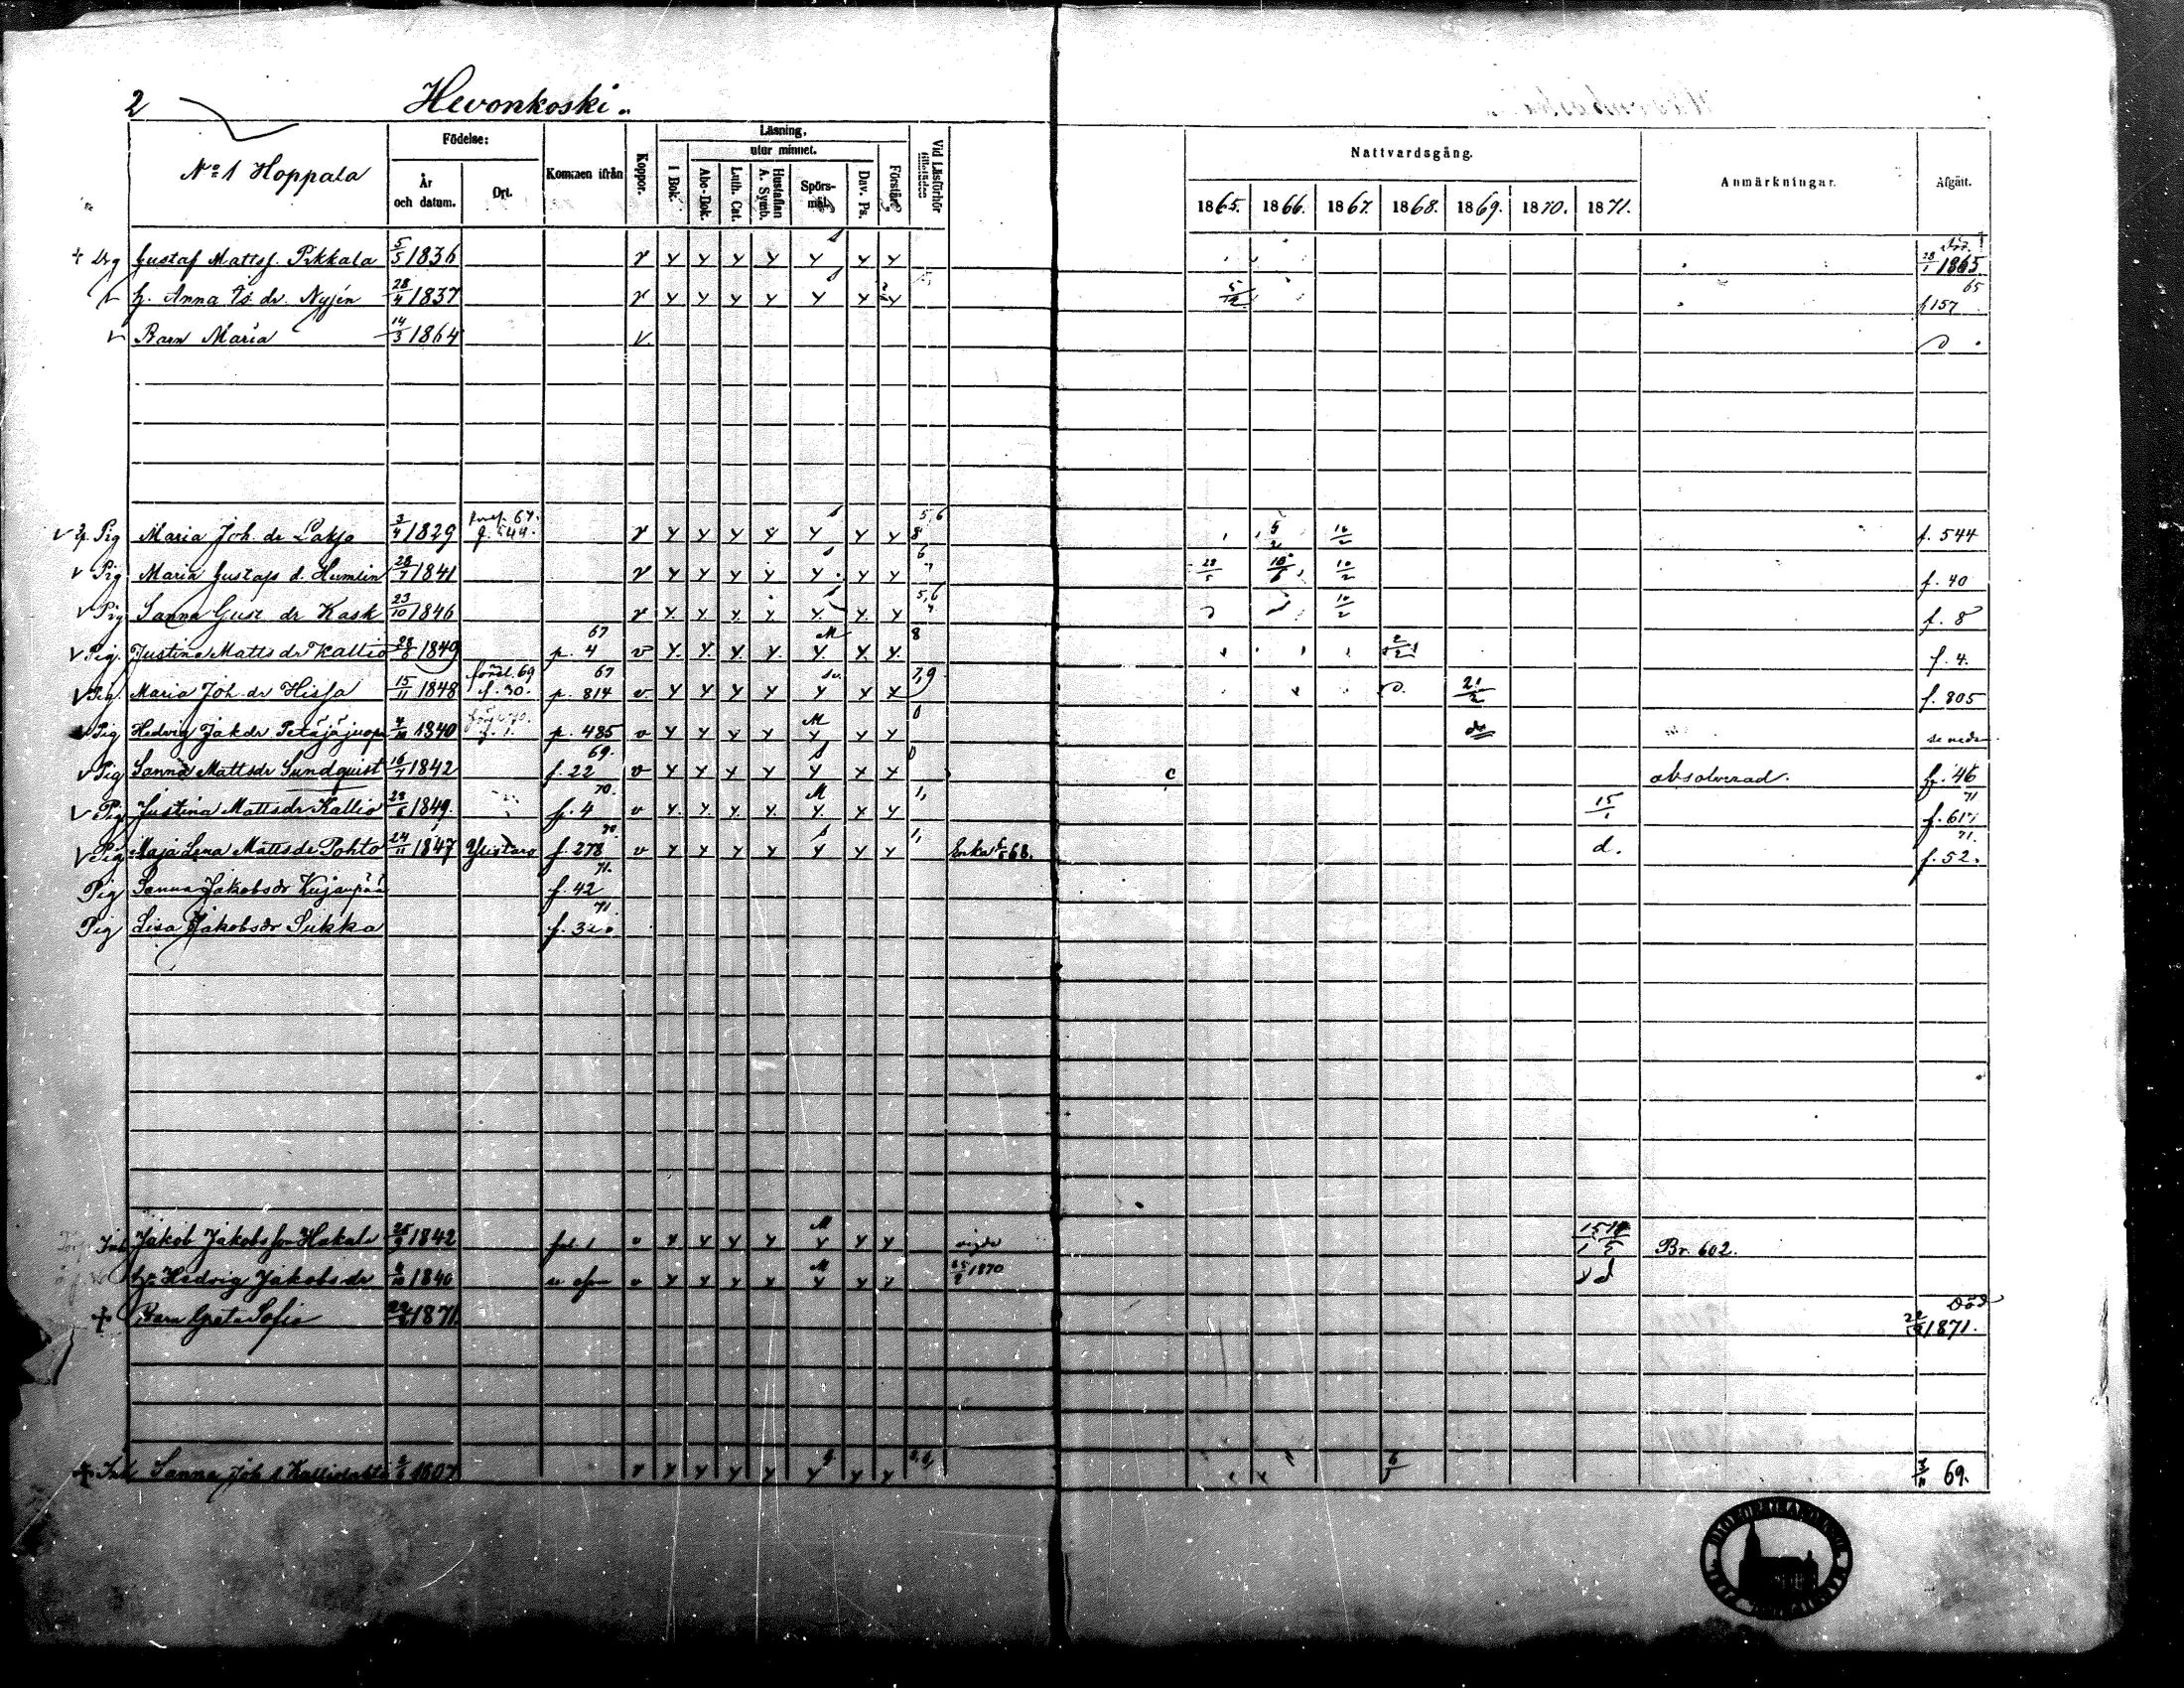 2 Hevonkoski.
No 1 Hoppala
Födelse:
År och datum.
Ort.
Kommen ifrån
Koppor.
Läsning,
utur minnet.
I Bok.
Abc-Bok.
Luth. Cat.
Hustaflan A. Symb.
Spörsmål.
Dav. Ps.
Förstår
Vid Läsförhör tillstädes
Nattvardsgång.
1865. 1866. 1867. 1868. 1869. 1870. 1871.
Anmärkningar.
Afgått.
+ Drg Gustaf Mattss. Pikkala 5/5 1836 v y y y y y y y 28/1 1865
h. Anna Is dr. Nyjén 28/4 1837 v y y y y y y y 5/12 65 f 157
Barn Maria 14/3 1864 v
v Pig Maria Joh. dr Lakso 3/4 1829 f. 544. v y y y y y y y 5,6 8 5/2 10/2 f. 544
v Pig Maria Gustafs d. Humlin 28/7 1841 v y y y y y y y 6 7 28/5 10/2 f. 40
v Pig Sanna Gust dr Kask 23/10 1846 v y y y y y y y 5,6 7 10/2 f. 8
v Pig. Justina Matts dr Kallio 28/6 1849 67 p. 4 v y y y y y y y M 8 2/2 f. 4.
v Pig. Maria Joh. dr Hissa 15/11 1848 69 f. 30. 67 p. 814 v y y y y y y y 7,9 21/2 f. 805
v Pig Hedvig Jak dr Petäjäjuopa 4/10 1840 f. 1. p. 485 v y y y y y y y M 0 do se neda
v Pig Sanna Mattsdr Sundquist 16/7 1842 69. f. 22 v y y y y y y y 0 c absolverad. f. 46
v Pig Justina Mattsdr Kallio 28/6 1849. 70. f. 4 v y y y y y y y M 1, 15/1 71 f. 617
v Pig Maja Lena Mattsdr Pohto 24/11 1847 Ylistaro 70. f. 278 v y y y y y y y 1, Enka 68. d. 71 f. 52.
Pig Sanna Jakobsdr Kujanpää 71. f. 42
Pig Lisa Jakobsdr Sukka 71. f. 32
Inh Jakob Jakobsson Hakala 25/9 1842 fol. 1 v y y y y y y y M vigde 15/1 Br. 602.
h. Hedvig Jakobsdr 4/10 1840 v y y y y y y y M 1870 d
+ Barn Greta Sofia 1871. Död 1871.
+ Inh Sanna Joh d Kallio 1807 v y y y y y y y 6/1 69.